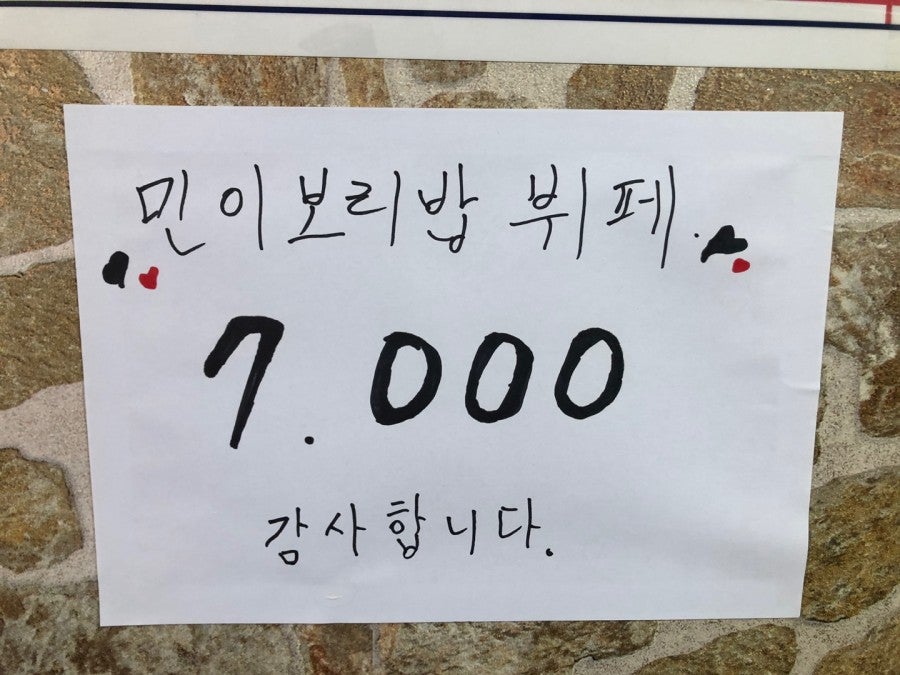 민이보리밥 뷔페.
7.000
감사합니다.